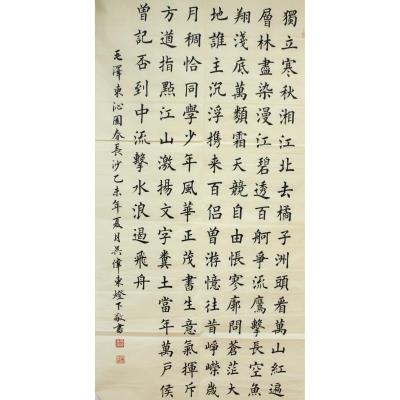 獨立寒秋湘江北去橘子洲頭看萬山紅遍
層林盡染漫江碧透百舸爭流鷹擊長空魚
翔淺底萬類霜天競自由悵寥廓問蒼茫大
地誰主沉浮携來百侶曾游憶往昔崢嶸歲
月稠恰同學少年風華正茂書生意氣揮斥
方遒指點江山激揚文字糞土當年萬戶侯
曾記否到中流擊水浪遏飛舟
毛澤東沁園春長沙乙未年夏月吳偉東燈下敬書